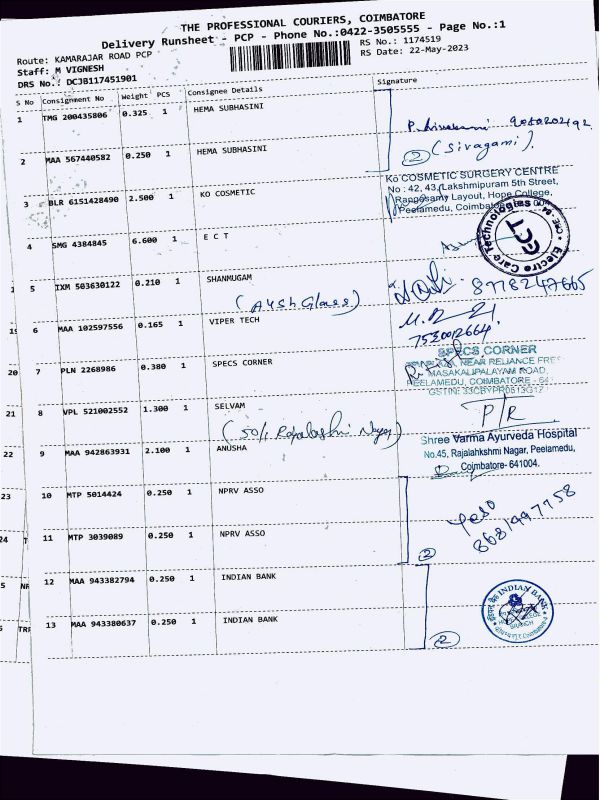 THE PROFESSIONAL COURIERS, COIMBATORE
Delivery Runsheet - PCP - Phone No.:0422-3505555 - Page No.:1
Route: KAMARAJAR ROAD PCP
RS No.: 1174519
Staff: M VIGNESH
RS Date: 22-May-2023
DRS No.: DCJB117451901
S No Consignment No Weight PCS Consignee Details Signature
1 TMG 200435806 0.325 1 HEMA SUBHASINI
2 MAA 567440582 0.250 1 HEMA SUBHASINI
2 (Sivagami).
3 BLR 6151428490 2.500 1 KO COSMETIC
Ko COSMETIC SURGERY CENTRE
No : 42, 43, Lakshmipuram 5th Street,
Rangasamy Layout, Hope College,
Peelamedu, Coimbatore
4 SMG 4384845 6.600 1 E C T
Electro Care Technologies
5 IXM 503630122 0.210 1 SHANMUGAM
(Aysh Glass)
8778247665
6 MAA 102597556 0.165 1 VIPER TECH
7530012664
7 PLN 2268986 0.380 1 SPECS CORNER
SPECS CORNER
NEAR RELIANCE FRES
MASAKALIPALAYAM ROAD,
PEELAMEDU, COIMBATORE - 641
8 VPL 521002552 1.300 1 SELVAM
P/R
(50/1 Rajalashmi Nagar)
9 MAA 942863931 2.100 1 ANUSHA
Shree Varma Ayurveda Hospital
No.45, Rajalahkshmi Nagar, Peelamedu,
Coimbatore- 641004.
10 MTP 5014424 0.250 1 NPRV ASSO
11 MTP 3039089 0.250 1 NPRV ASSO
2
8681997758
12 MAA 943382794 0.250 1 INDIAN BANK
INDIAN BANK
BRANCH
13 MAA 943380637 0.250 1 INDIAN BANK
2